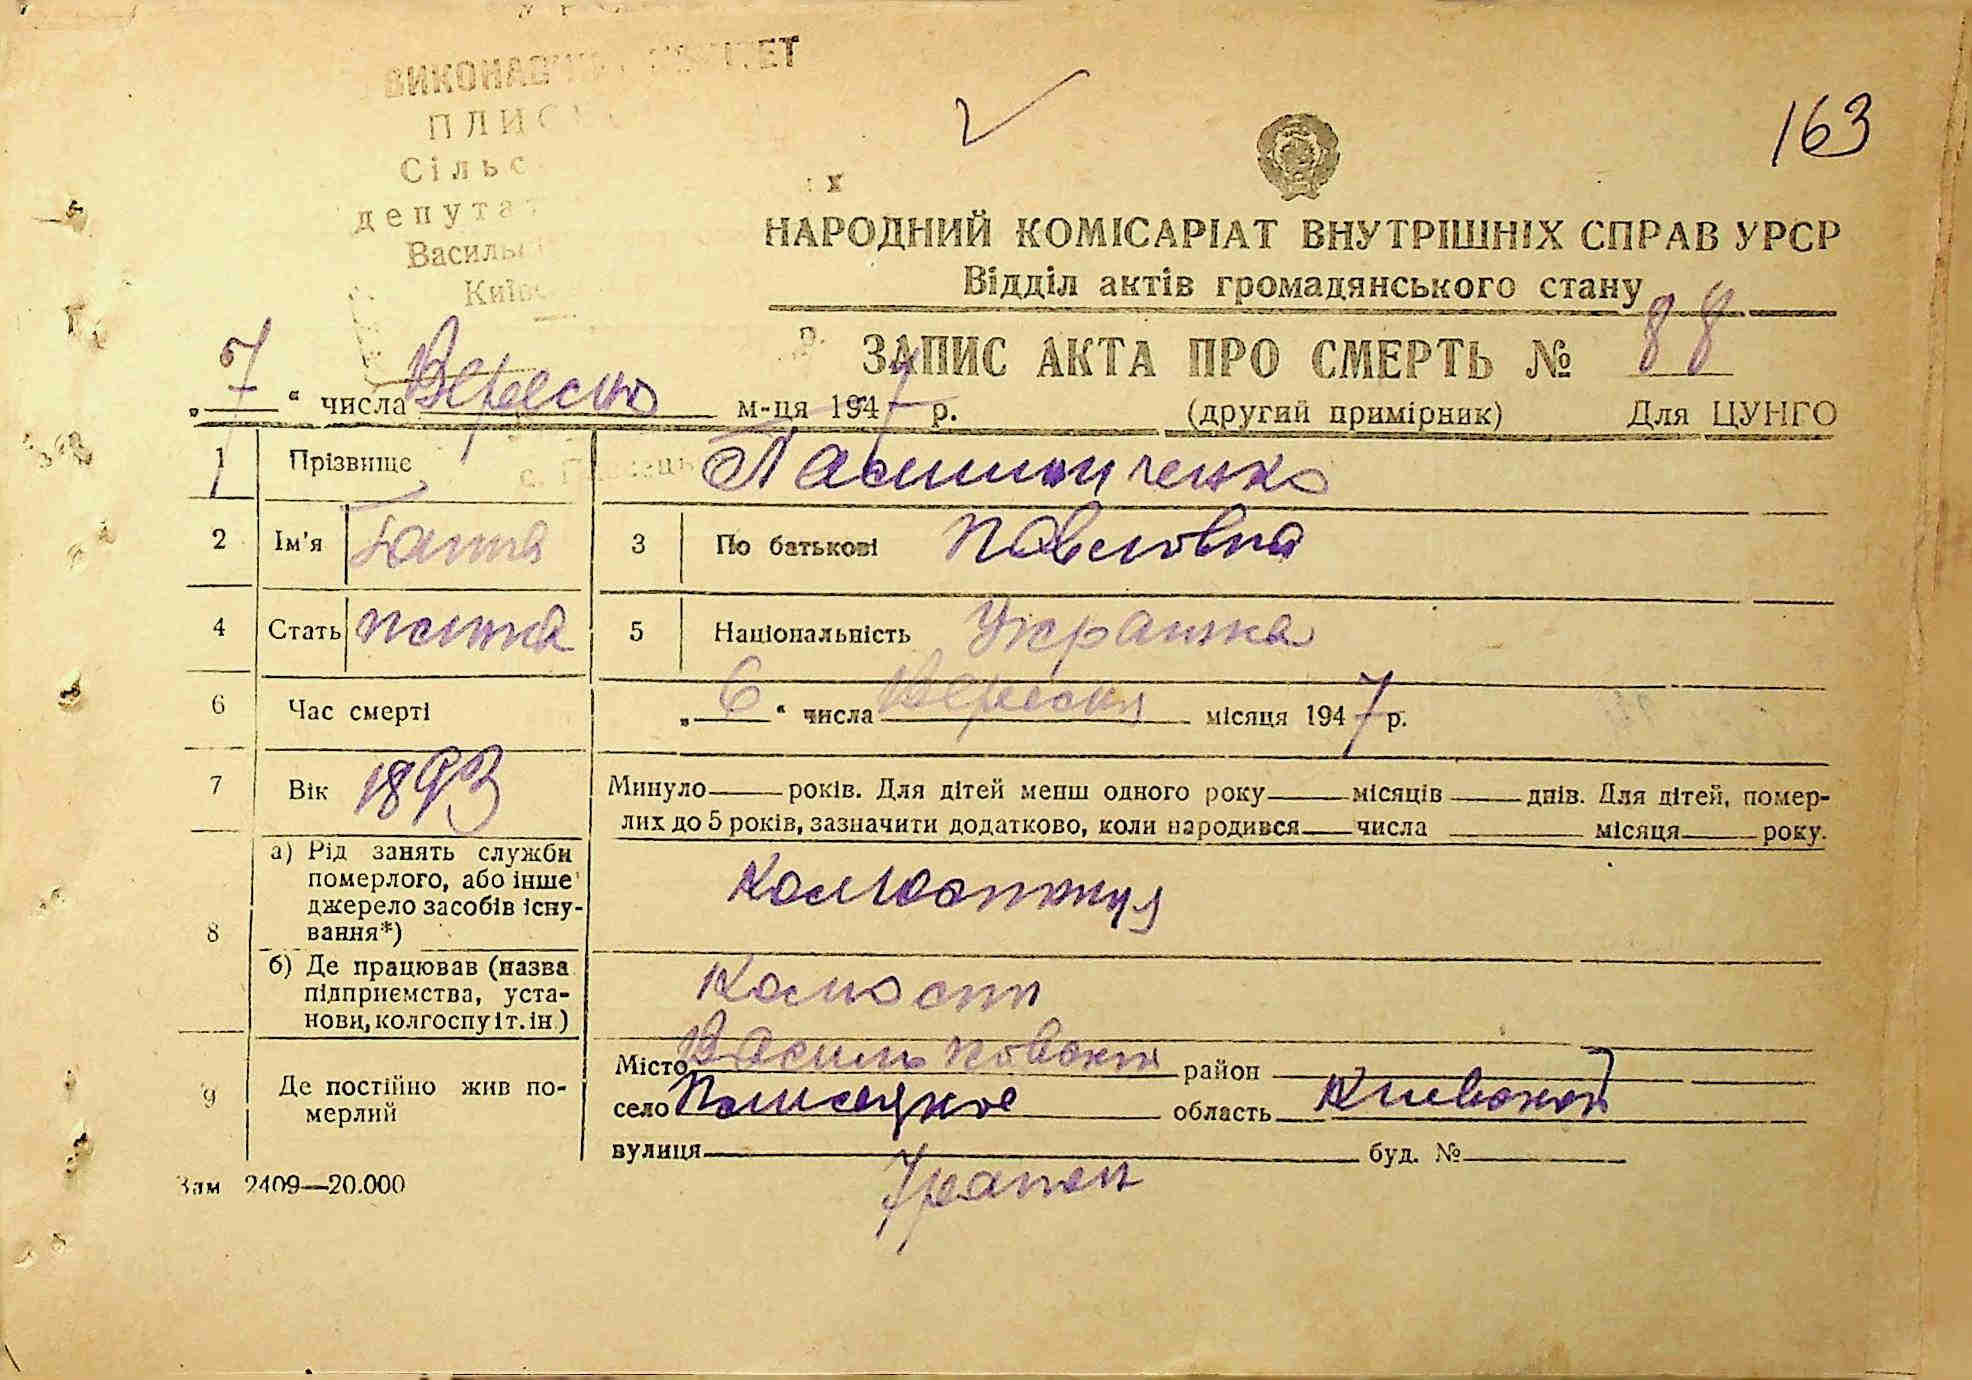 ПЛИС
Сільс
депутат
Василь
Київс
163
НАРОДНИЙ КОМІСАРІАТ ВНУТРІШНІХ СПРАВ УРСР
Відділ актів громадянського стану
ЗАПИС АКТА ПРО СМЕРТЬ № 88
„ 7 “ числа Вересня м-ця 1947 р. (другий примірник) Для ЦУНГО
1 Прізвище
2 Ім'я Ганна 3 По батькові Павловна
4 Стать 5 Національність Українка
6 Час смерті „ 6 “ числа Вересня місяця 1947 р.
7 Вік 1893 Минуло років. Для дітей менш одного року місяців днів. Для дітей, помер-
лих до 5 років, зазначити додатково, коли народився числа місяця року.
8 а) Рід занять служби
померлого, або інше
джерело засобів існу-
вання*)
Колгоспниця
б) Де працював (назва
підприємства, уста-
нови, колгоспу і т. ін.)
Колгосп
9 Де постійно жив по-
мерлий
Місто Васильковский район
село Плисецкое область Киевской
вулиця буд. №
Зам 2409—20.000